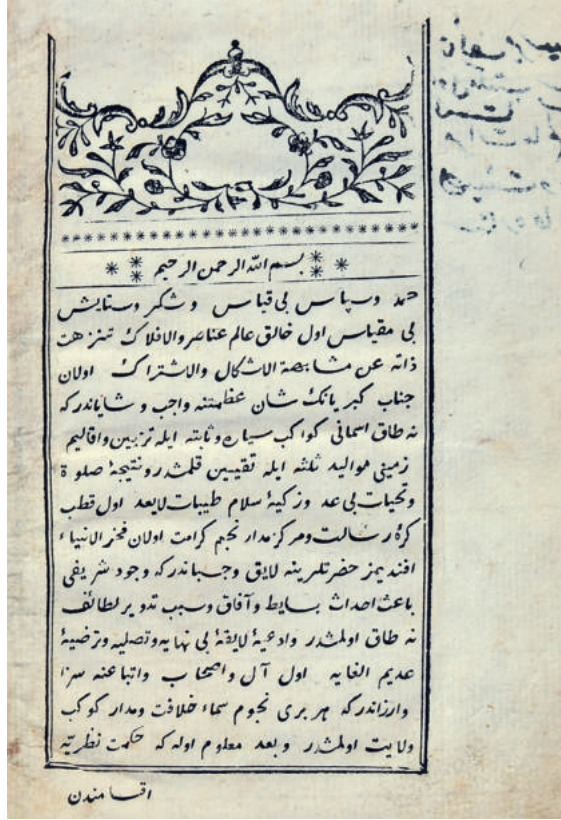 بسم الله الرحمن الرحيم
حمد وسپاس بی قیاس وشکر وستایش
بی مقیاس اول خالق عالم عناصر والافلاک تنزهت
ذاته عن مشابهة الاشکال والاشتراک اولان
جناب کبریانک شان عظمتنه واجب و شایاندرکه
نه طاق اسمانی کواکب سیاره وثابته ایله تزیین واقالیم
زمینی موالید ثلثه ایله تقیین قلمشدر ونتیجهٔ صلوة
وتحیات بی عد وزکیهٔ سلام طیبات لایعد اول قطب
کرهٔ رسالت ومرکز مدار نجم کرامت اولان فخر الانبیاء
افندیمز حضرتلرینه لایق وحسباندرکه وجود شریفی
باعث احداث بسایط وآفاق وسبب تدویر لطائف
نه طاق اولمشدر وادعیهٔ لایقهٔ بی نهایه وتصلیه وترضیهٔ
عدیم الغایه اول آل واصحاب واتباعنه سزا
وارزاندرکه هر بری نجوم سماء خلافت ومدار کوکب
ولایت اولمشدر وبعد معلوم اوله که حکمت نظریه
اقسامندن